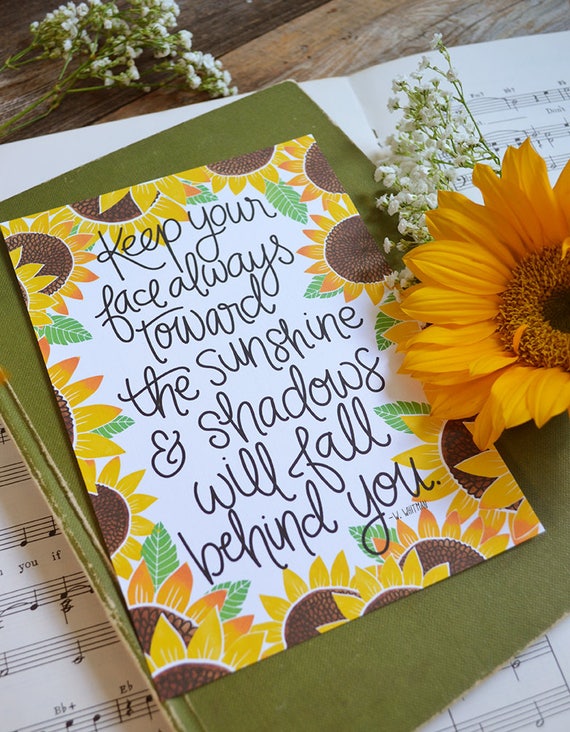 Keep your
face always
toward
the sunshine
& shadows
will fall
behind you.
-W. WHITMAN
Don't
n you if
Bb+
Eb